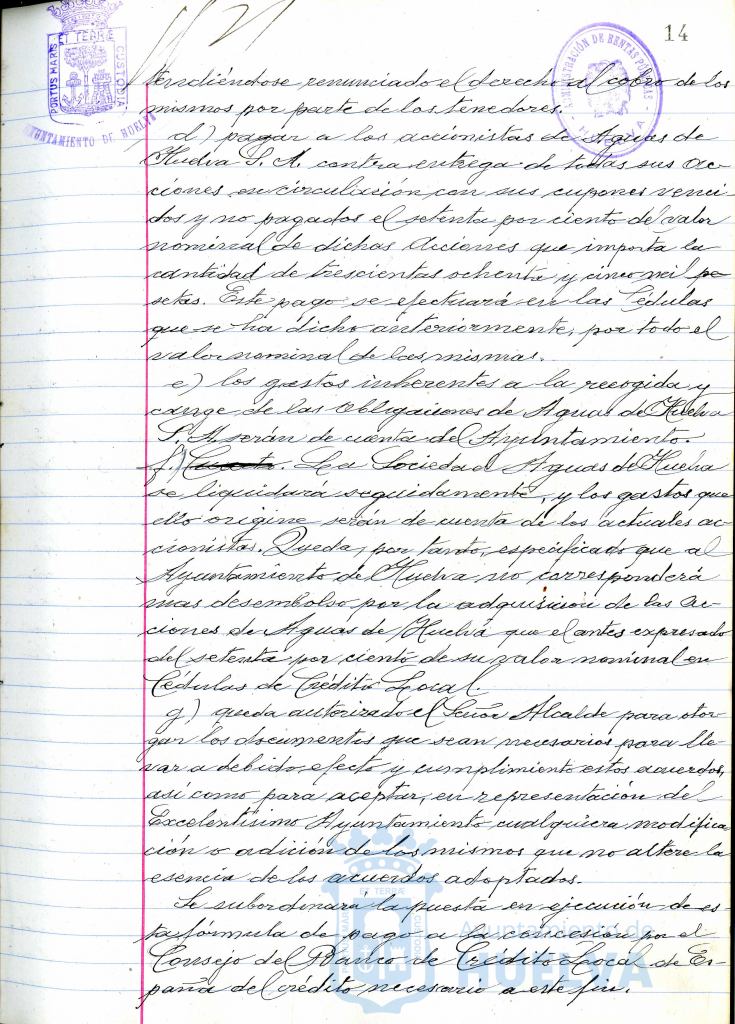 14
PORTUS MARIS ET TERRÆ CUSTODIA
AYUNTAMIENTO DE HUELVA
ADMINISTRACIÓN DE RENTAS PÚBLICAS
tendiéndose renunciado el derecho al cobro de los
mismos por parte de los tenedores.
d) pagar a los accionistas de Aguas de
Huelva S. A. contra entrega de todas sus ac-
ciones en circulación con sus cupones venci-
dos y no pagados el setenta por ciento del valor
nominal de dichas Acciones que importa la
cantidad de trescientas ochenta y cinco mil pe-
setas. Este pago se efectuará en las Cédulas
que se ha dicho anteriormente, por todo el
valor nominal de las mismas.
e) los gastos inherentes a la recogida y
cange de las Obligaciones de Aguas de Huelva
S. A. serán de cuenta del Ayuntamiento.
f.) La Sociedad Aguas de Huelva
se liquidará seguidamente, y los gastos que
ello origine serán de cuenta de los actuales ac-
cionistas. Queda, por tanto, especificado que al
Ayuntamiento de Huelva no corresponderá
mas desembolso por la adquisición de las Ac-
ciones de Aguas de Huelva que el antes expresado
del setenta por ciento de su valor nominal en
Cédulas de Crédito Local.
g) queda autorizado el Señor Alcalde para otor-
gar los documentos que sean necesarios para lle-
var a debido efecto y cumplimiento estos acuerdos,
así como para aceptar, en representación del
Excelentísimo Ayuntamiento cualquiera modifica-
ción o adición de los mismos que no altere la
esencia de los acuerdos adoptados.
Se subordinará la puesta en ejecución de es-
ta fórmula de pago a la concesión por el
Consejo del Banco de Crédito Local de Es-
paña del crédito necesario a este fin.
Ayuntamiento de
HUELVA